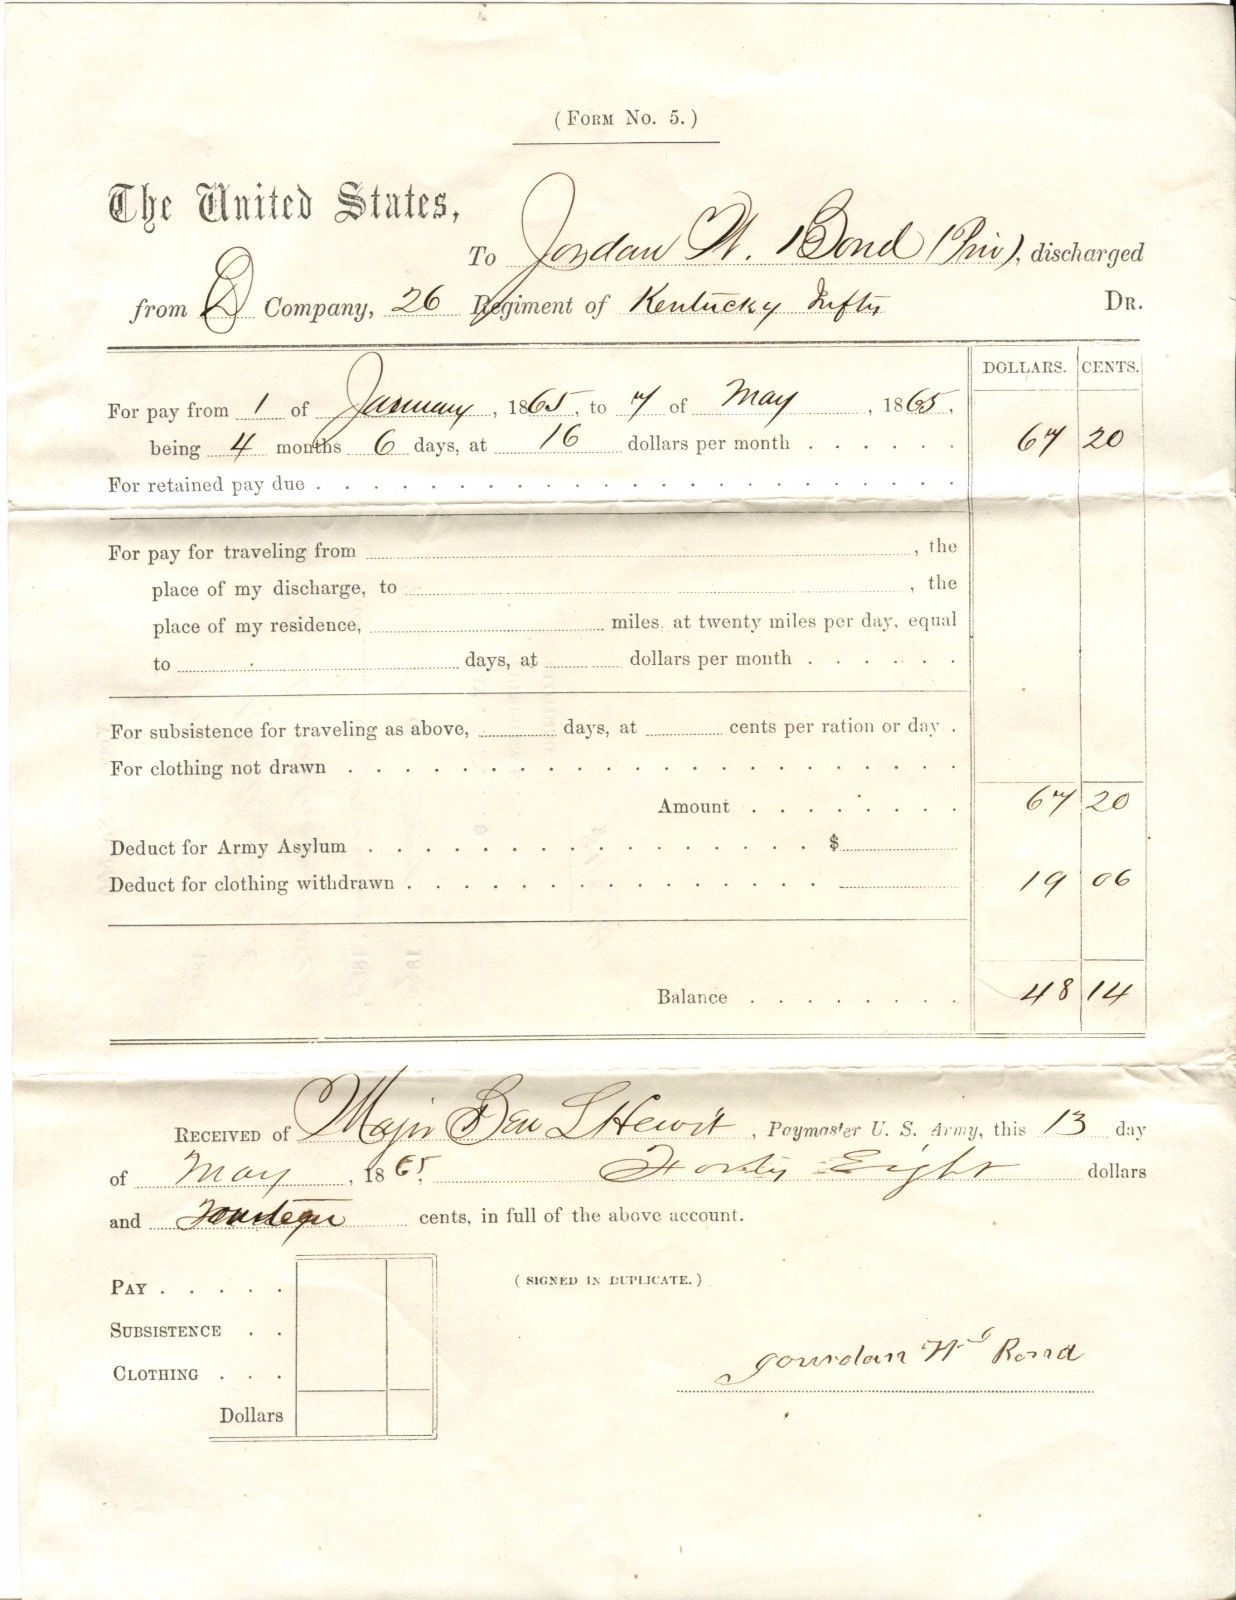 (FORM No. 5.)
The United States,
To Jordan W. Bond (Priv), discharged
from D Company, 26 Regiment of Kentucky Infty DR.
DOLLARS. CENTS.
For pay from 1 of January, 1865, to 7 of May, 1865,
being 4 months 6 days, at 16 dollars per month . . . . . . 67 20
For retained pay due . . . . . . . . . . . . . . . . . . . . . .
For pay for traveling from , the
place of my discharge, to , the
place of my residence, miles, at twenty miles per day, equal
to days, at dollars per month . . . . . .
For subsistence for traveling as above, days, at cents per ration or day .
For clothing not drawn . . . . . . . . . . . . . . . . . . . . . .
Amount . . . . . . . . 67 20
Deduct for Army Asylum . . . . . . . . . . . . . . . . $
Deduct for clothing withdrawn . . . . . . . . . . . . . . . 19 06
Balance . . . . . . . . 48 14
RECEIVED of Major Ben L Hewit, Paymaster U. S. Army, this 13 day
of May, 1865, Forty Eight dollars
and Fourteen cents, in full of the above account.
(SIGNED IN DUPLICATE.)
PAY . . . . .
SUBSISTENCE . .
CLOTHING . . .
Dollars
Jourdan W Bond